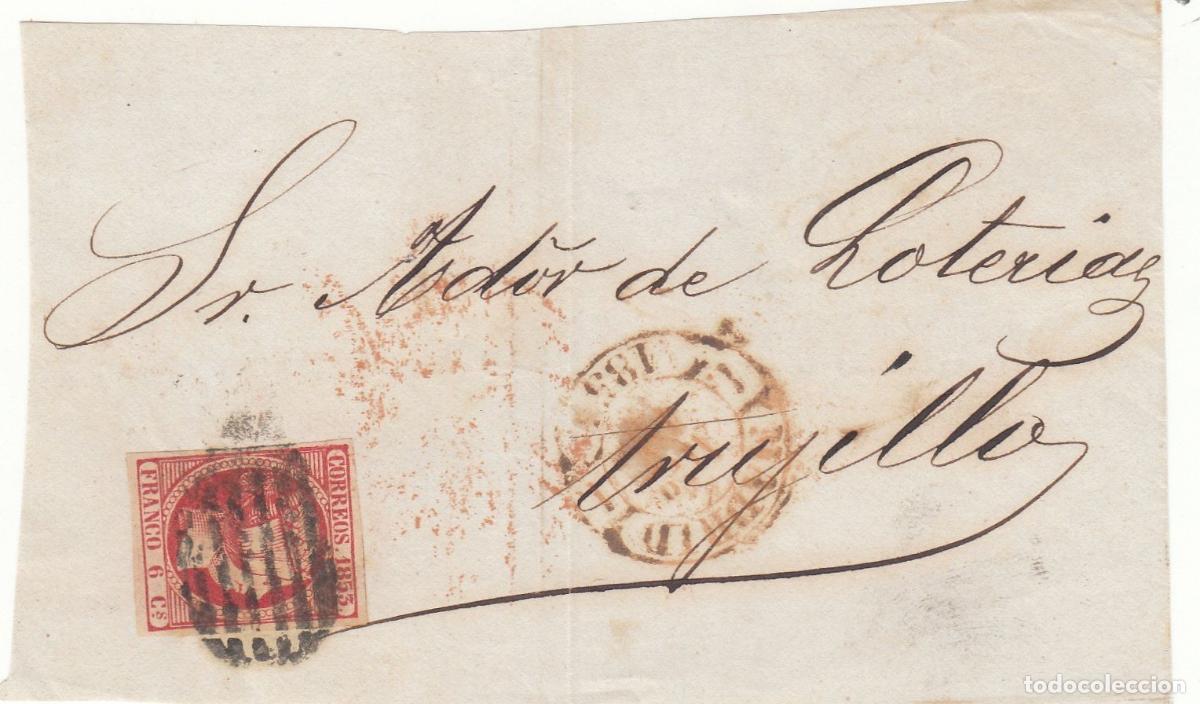 Sr. Adōr de Loterias
Trujillo
CORREOS. 1853.
FRANCO 6 Cs
MADRID
todocoleccion